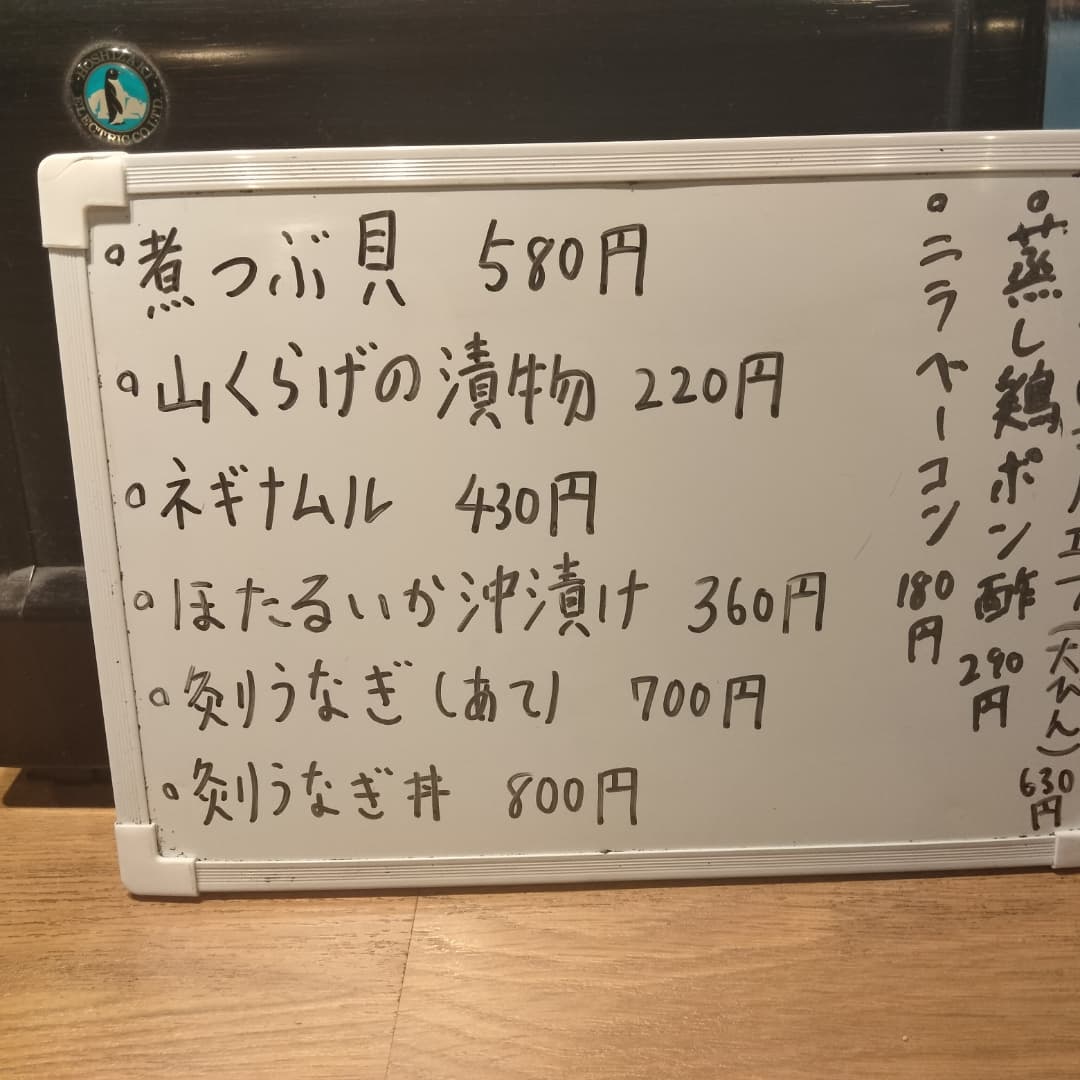 HOSHIZAKI ELECTRIC CO.LTD.
煮つぶ貝 580円
山くらげの漬物 220円
ネギナムル 430円
ほたるいか沖漬け 360円
炙りうなぎ(あて) 700円
炙りうなぎ丼 800円
(大びん) 630円
蒸し鶏ポン酢 290円
ニラベーコン 180円